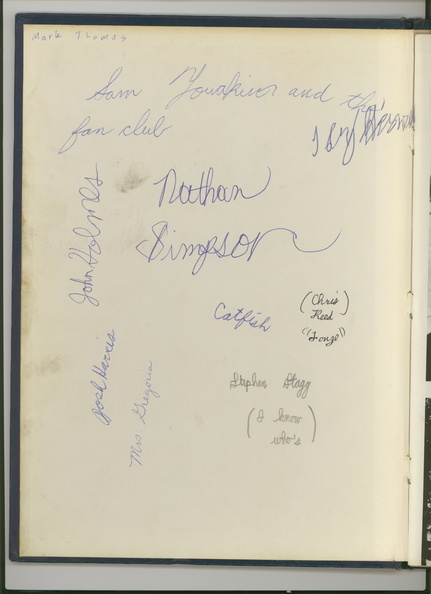 Mark Thomas
Sam Youakim and the
fan club
John Holmes
Nathan
Simpson
Catfish
(Chris)
Reed
"Fonze"
Jose Harris
Mrs Gregoria
Stephen Stagg
(I know
who's)